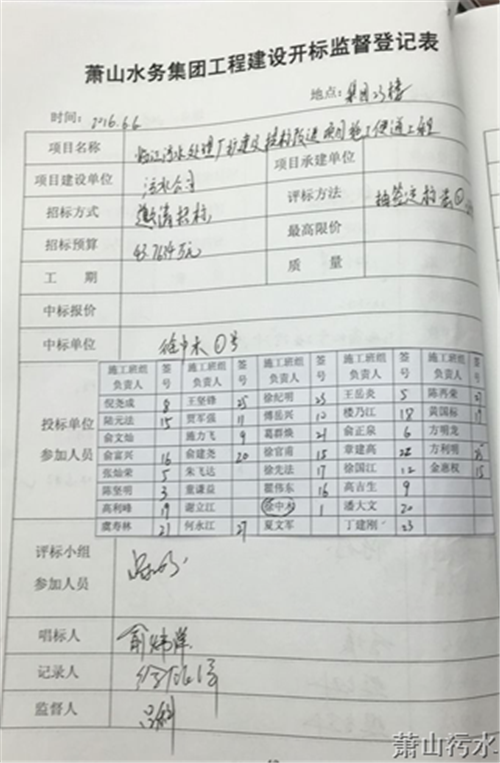 萧山水务集团工程建设开标监督登记表
时间：2016.6.6
地点：集团23楼
项目名称 临江污水处理厂扩建及提标改造项目施工便道工程
项目建设单位 污水公司 项目承建单位
招标方式 邀请招标 评标方法 抽签定标法
招标预算 43.7654万元 最高限价
工期 质量
中标报价
中标单位 徐中木 ①号
投标单位
参加人员
施工班组负责人 签号 施工班组负责人 签号 施工班组负责人 签号 施工班组负责人 签号 施工班组负责人 签号
倪尧成 8 王坚锋 25 徐纪明 23 王岳炎 5 陈再荣
陆元法 15 贾军强 11 傅岳兴 12 楼乃江 18 黄国标
俞文灿 施力飞 9 葛群焕 俞正泉 6 方明龙
俞富兴 16 俞建尧 20 徐官甫 15 章建高 22 方利明
张灿荣 5 朱飞达 徐先法 17 徐国江 12 金惠权 15
陈坚明 3 童谦益 瞿伟东 16 高吉生 9
高利峰 19 谢立江 徐中木 1 潘大文 20
虞寿林 21 何永江 27 夏文军 丁建刚 23
评标小组
参加人员
唱标人
记录人
监督人
萧山污水